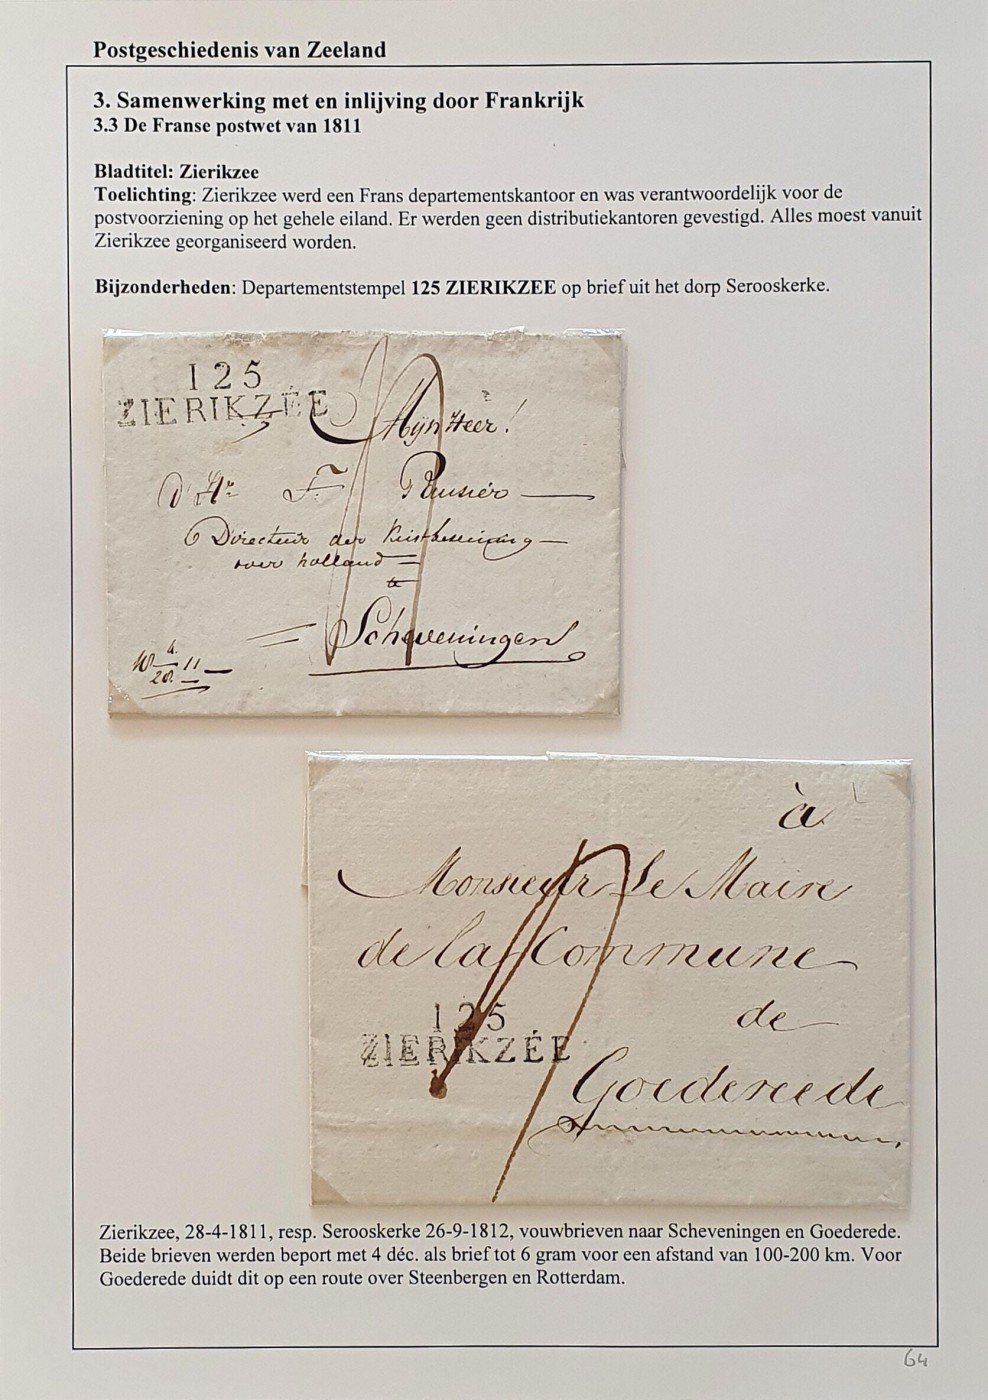 Postgeschiedenis van Zeeland
3. Samenwerking met en inlijving door Frankrijk
3.3 De Franse postwet van 1811
Bladtitel: Zierikzee
Toelichting: Zierikzee werd een Frans departementskantoor en was verantwoordelijk voor de
postvoorziening op het gehele eiland. Er werden geen distributiekantoren gevestigd. Alles moest vanuit
Zierikzee georganiseerd worden.
Bijzonderheden: Departementstempel 125 ZIERIKZEE op brief uit het dorp Serooskerke.
125
ZIERIKZÉE
Mijn Heer!
d'Hr F.
Directeur der
over holland
te
Scheveningen
à
Monsieur Le Maire
de la Commune
de
125
ZIERIKZÉE
Goedereede
Zierikzee, 28-4-1811, resp. Serooskerke 26-9-1812, vouwbrieven naar Scheveningen en Goederede.
Beide brieven werden beport met 4 déc. als brief tot 6 gram voor een afstand van 100-200 km. Voor
Goederede duidt dit op een route over Steenbergen en Rotterdam.
64